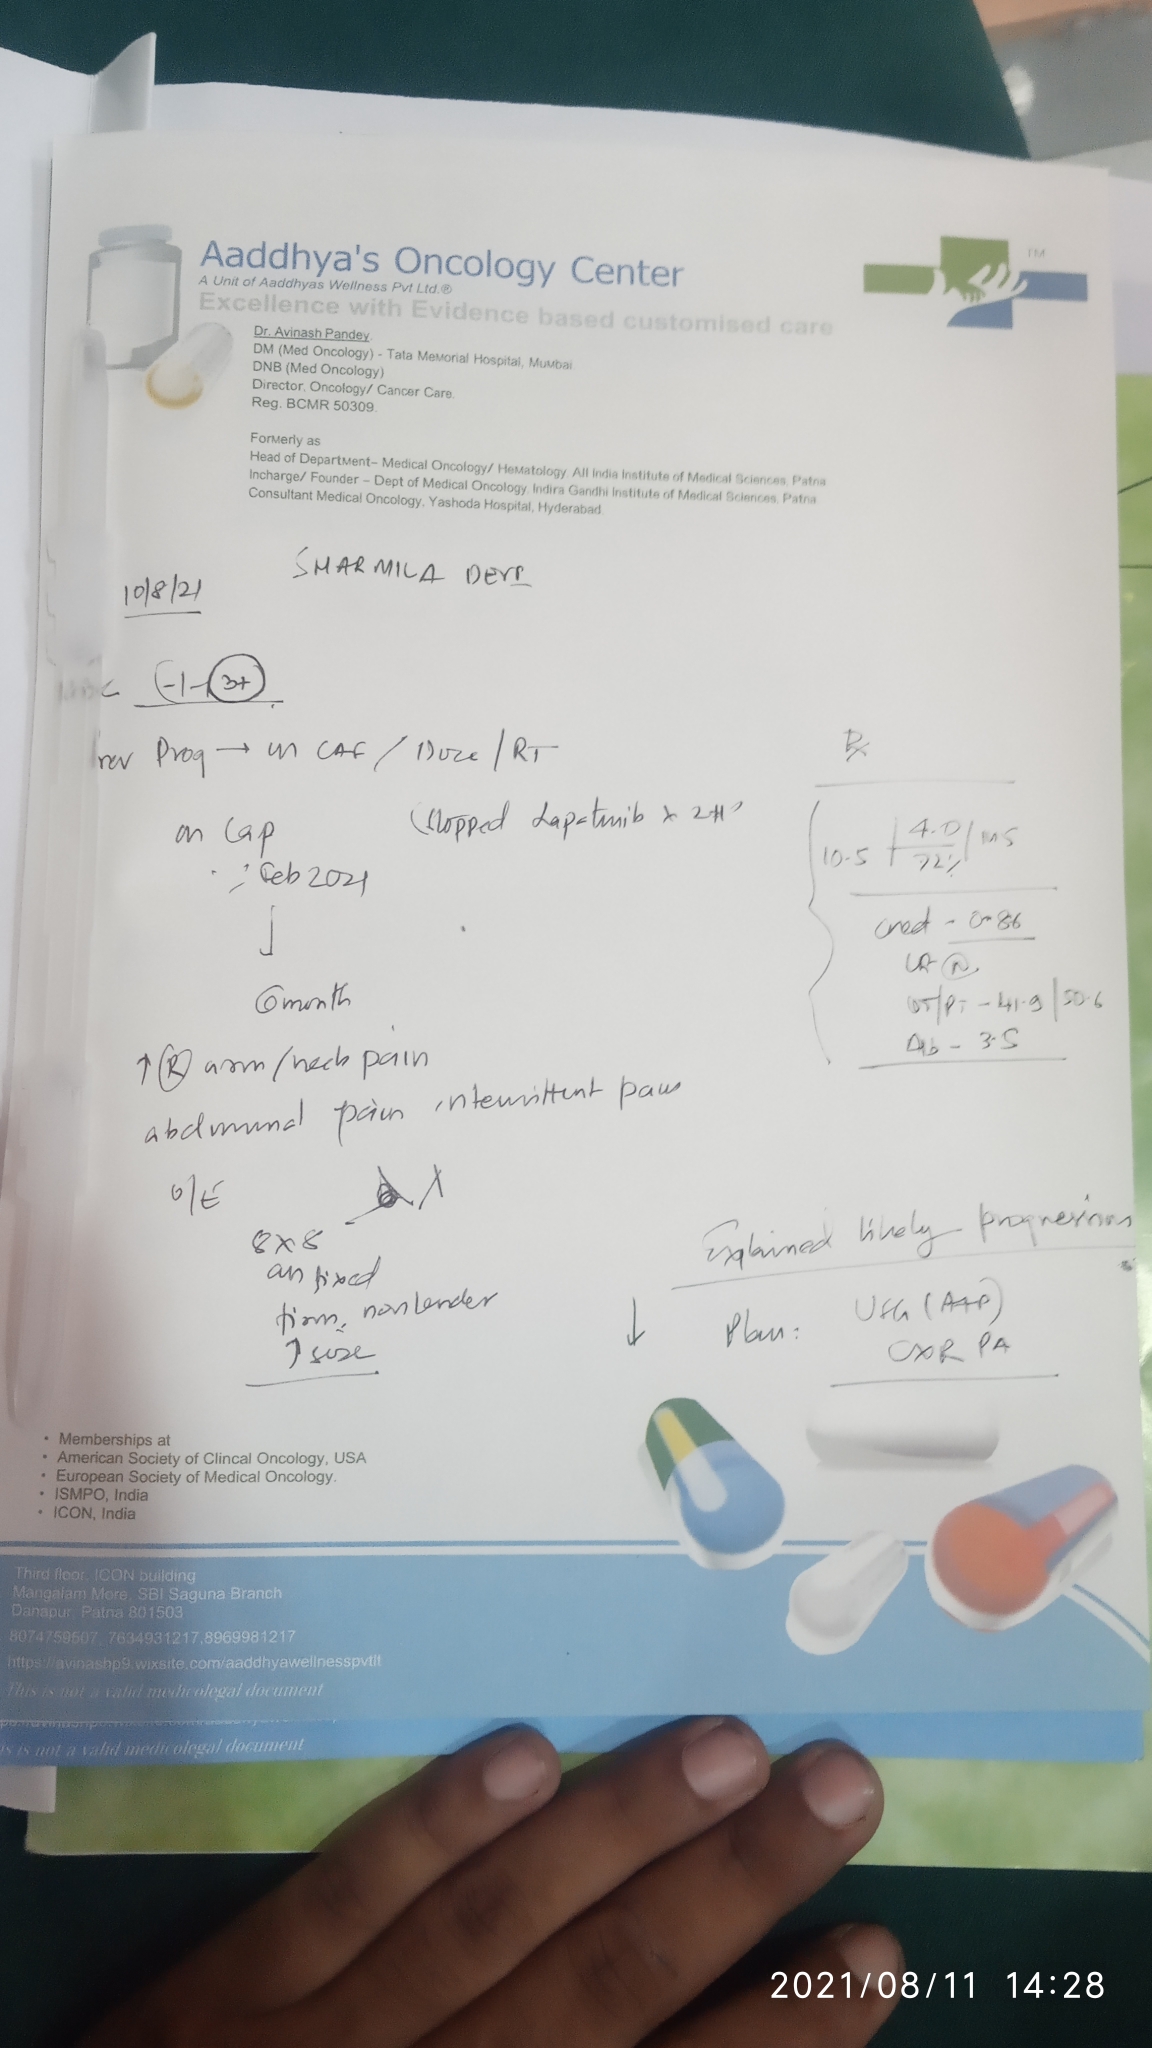 Aaddhya's Oncology Center
TM
A Unit of Aaddhyas Wellness Pvt Ltd.®
Excellence with Evidence based customised care
Dr. Avinash Pandey.
DM (Med Oncology) - Tata Memorial Hospital, Mumbai
DNB (Med Oncology)
Director, Oncology/ Cancer Care.
Reg. BCMR 50309.
Formerly as
Head of Department– Medical Oncology/ Hematology. All India Institute of Medical Sciences, Patna
Incharge/ Founder – Dept of Medical Oncology. Indira Gandhi Institute of Medical Sciences, Patna
Consultant Medical Oncology, Yashoda Hospital, Hyderabad.
SHARMILA DEVI
10/8/21
(-/-/3+
Prog → on CAF / Doce / RT
(stopped Lapatinib x
on Cap
: Feb 2021
↓
6 month
↑ (R) arm/neck pain
abdominal pain intermittent
O/E
8x8
fixed
firm, nontender
↑ size
Rx
10.5 | 4.0 /
72%
creat - 0.86
(N)
OT/PT - 41.9 / 50.6
Alb - 3.5
Explained likely progression
↓ Plan: USG (A+P)
CXR PA
• Memberships at
• American Society of Clincal Oncology, USA
• European Society of Medical Oncology.
• ISMPO, India
• ICON, India
Third floor, ICON building
Mangalam More, SBI Saguna Branch
Danapur, Patna 801503
8074759507, 7634931217,8969981217
https://avinashp9.wixsite.com/aaddhyawellnesspvtlt
This is not a valid medicolegal document
is is not a valid medicolegal document
2021/08/11 14:28